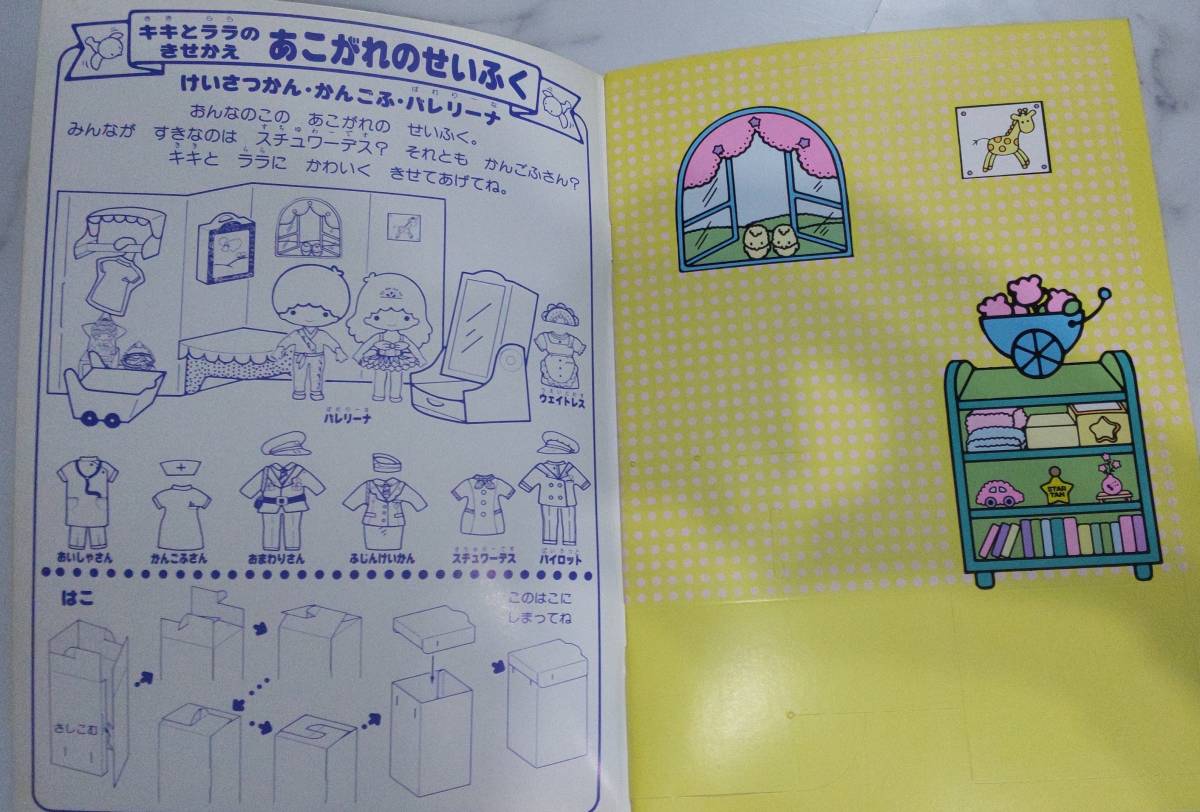 キキとララの
きせかえ
あこがれのせいふく
けいさつかん・かんごふ・バレリーナ
おんなのこの　あこがれの　せいふく。
みんなが　すきなのは　スチュワーデス？　それとも　かんごふさん？
キキと　ララに　かわいく　きせてあげてね。
ウエイトレス
バレリーナ
おいしゃさん
かんごふさん
おまわりさん
ふじんけいかん
スチュワーデス
パイロット
はこ
このはこに
しまってね
さしこむ
STAR